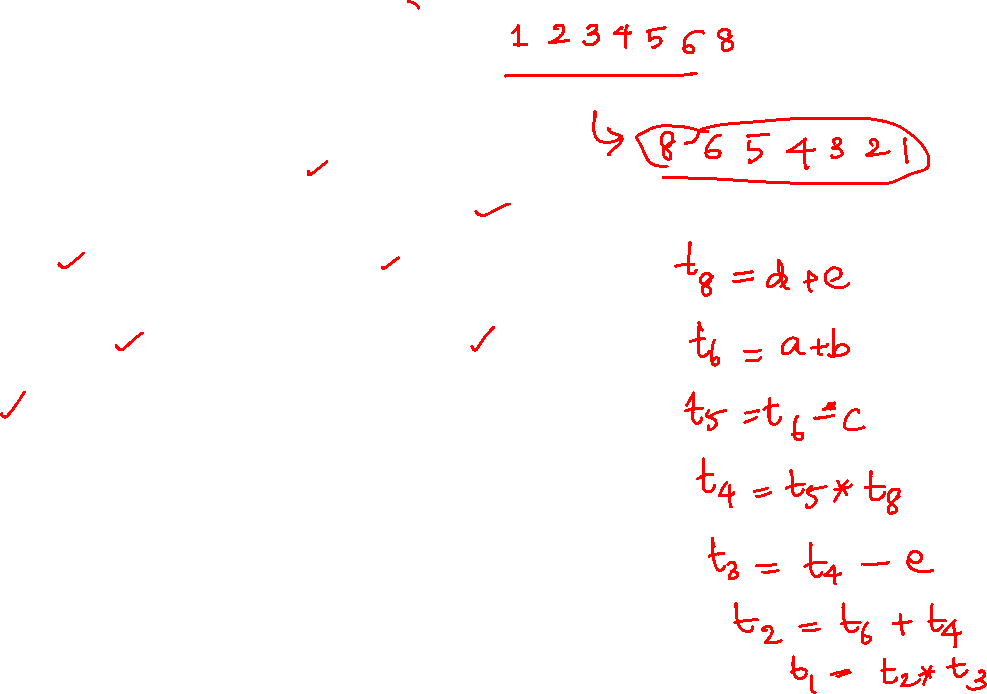 1 2 3 4 5 6 8
8 6 5 4 3 2 1
t8 = d+e
t6 = a+b
t5 = t6 - c
t4 = t5 * t8
t3 = t4 - e
t2 = t6 + t4
t1 = t2 * t3